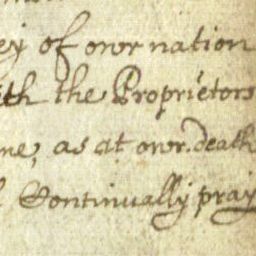 ey of our nation
ith the Proprietors
me, as at our death
Continually pray